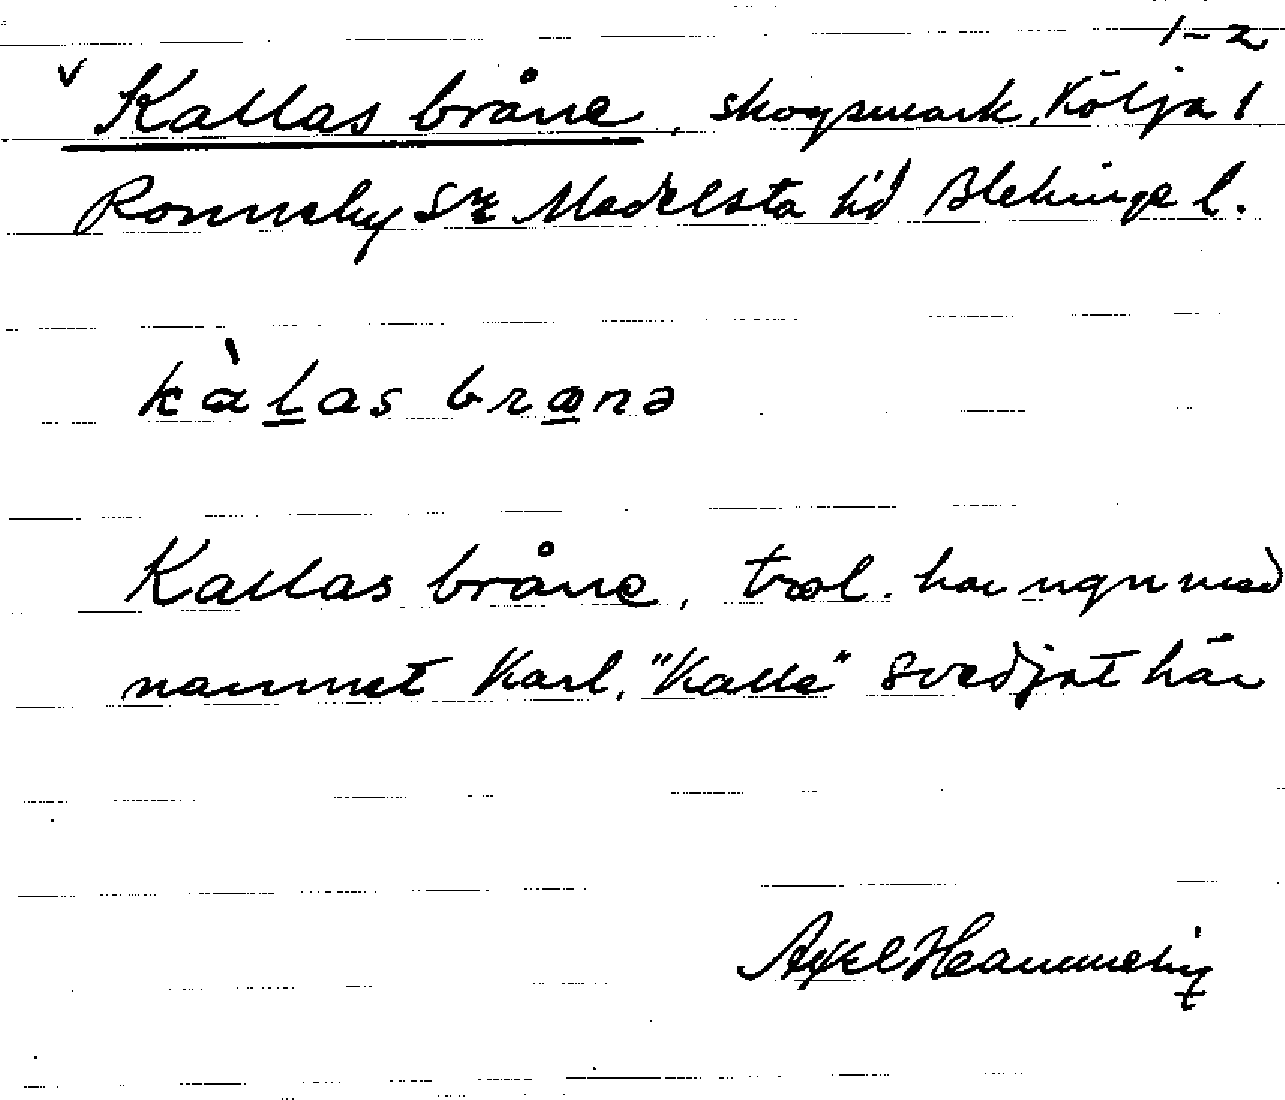 1-2
v Kallas bråne, skogsmark. Kölja 1
Ronneby Sn Medelsta hd Blekinge l.
kàlas brænə
Kallas bråne, trol. har ngn med
namnet Karl, "Kalle" svedjat här
Axel Hemmeby